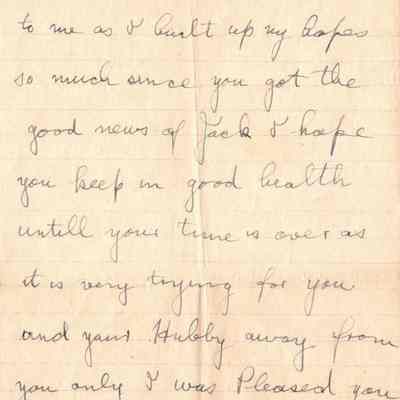 to me as I built up my hopes
so much since you got the
good news of Jack I hope
you keep in good health
untill your time is over as
it is very trying for you
and your Hubby away from
you only I was Pleased you